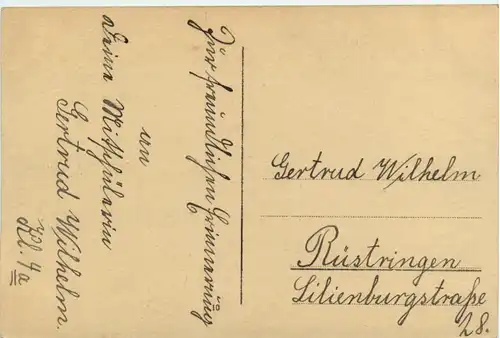 Zur freundlichen Erinnerung
an
Deine Mitschülerin
Gertrud Wilhelm.
Kl. 4a
Gertrud Wilhelm
Rüstringen
Lilienburgstraße
28.